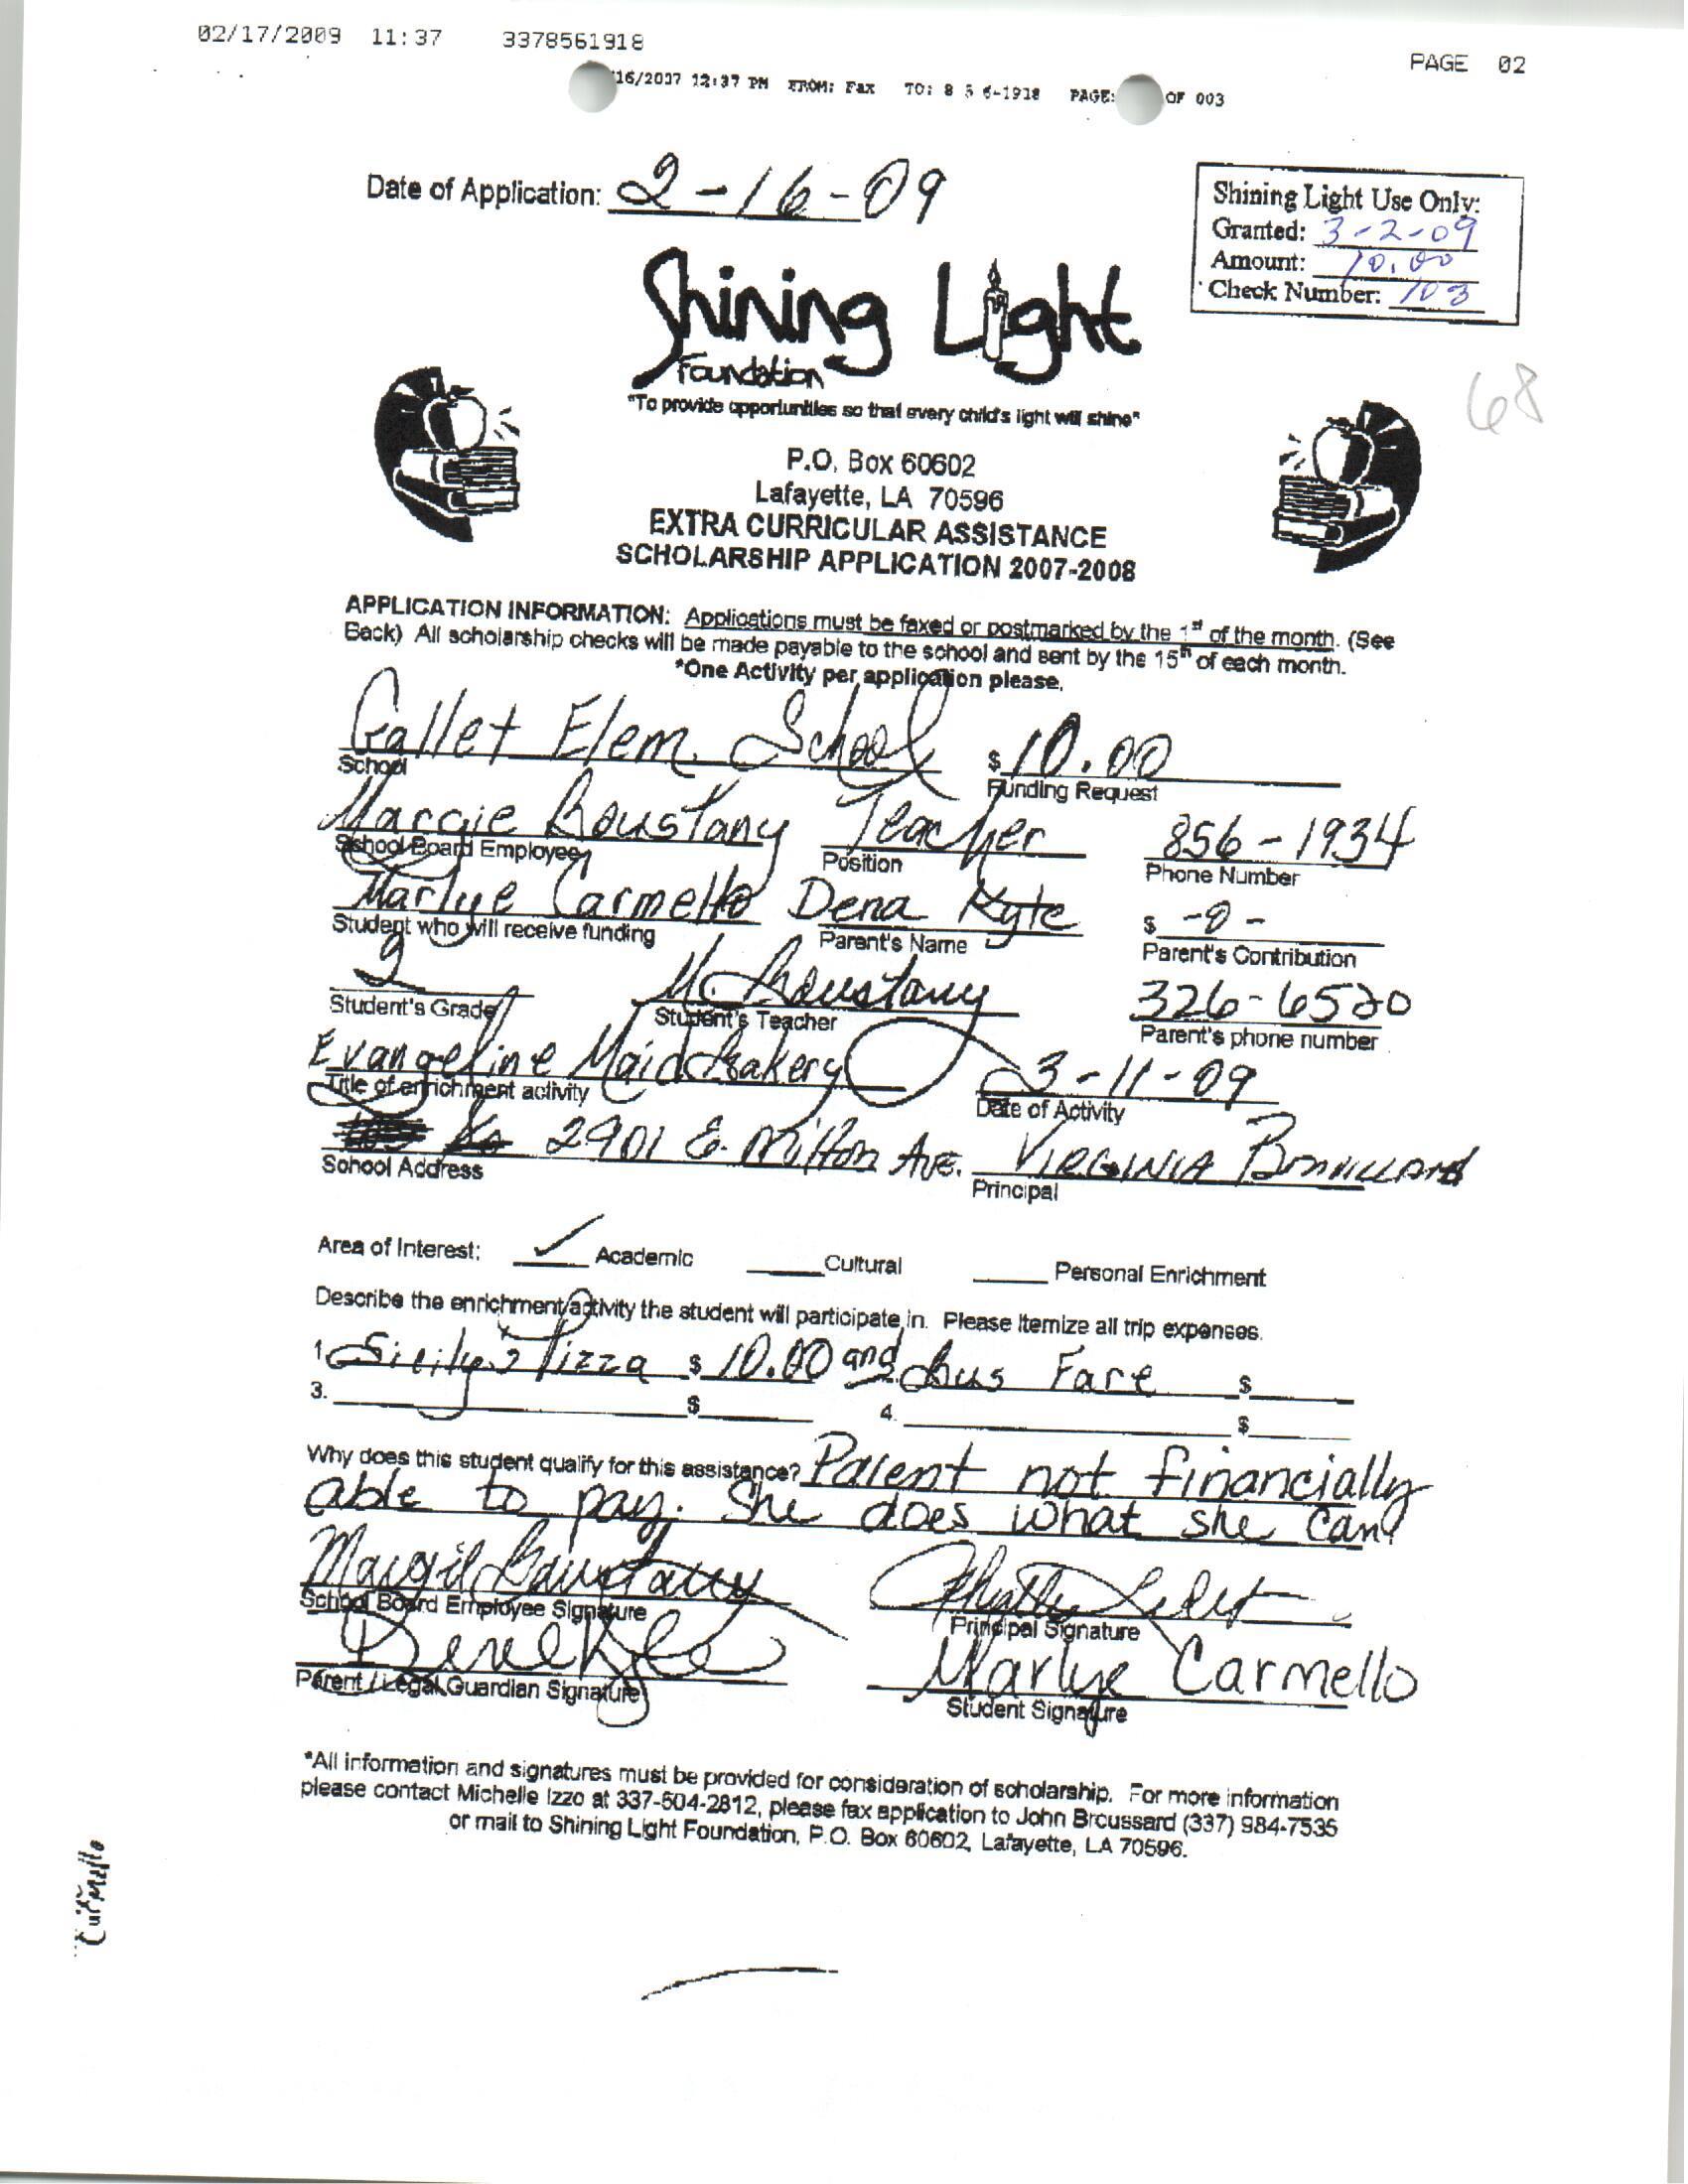 02/17/2009 11:37 3378561918 PAGE 02
16/2007 12:37 PM FROM: Fax TO: 8 5 6-1918 PAGE: OF 003
Date of Application: 2-16-09
Shining Light Use Only:
Granted: 3-2-09
Amount: 10.00
Check Number: 103
Shining Light
Foundation
"To provide opportunities so that every child's light will shine"
68
P.O. Box 60602
Lafayette, LA 70596
EXTRA CURRICULAR ASSISTANCE
SCHOLARSHIP APPLICATION 2007-2008
APPLICATION INFORMATION: Applications must be faxed or postmarked by the 1st of the month. (See
Back) All scholarship checks will be made payable to the school and sent by the 15th of each month.
*One Activity per application please.
Gallet Elem. School $ 10.00
School Funding Request
Margie Boustany Teacher 856-1934
School Board Employee Position Phone Number
Marlye Carmello Dena Kyte $ -0-
Student who will receive funding Parent's Name Parent's Contribution
2 M. Boustany 326-6520
Student's Grade Student's Teacher Parent's phone number
Evangeline Maid Bakery 3-11-09
Title of enrichment activity Date of Activity
2901 E. Milton Ave. VIRGINIA
School Address Principal
Area of Interest: ✓ Academic ____ Cultural ____ Personal Enrichment
Describe the enrichment/activity the student will participate in. Please itemize all trip expenses.
1. Sicily's Pizza $ 10.00 and Bus Fare $
3. $ 4. $
Why does this student qualify for this assistance? Parent not financially
able to pay. She does what she can.
Margie Boustany
School Board Employee Signature Principal Signature
Marlye Carmello
Parent / Legal Guardian Signature Student Signature
*All information and signatures must be provided for consideration of scholarship. For more information
please contact Michelle Izzo at 337-504-2812, please fax application to John Broussard (337) 984-7535
or mail to Shining Light Foundation, P.O. Box 60602, Lafayette, LA 70596.
Carmello